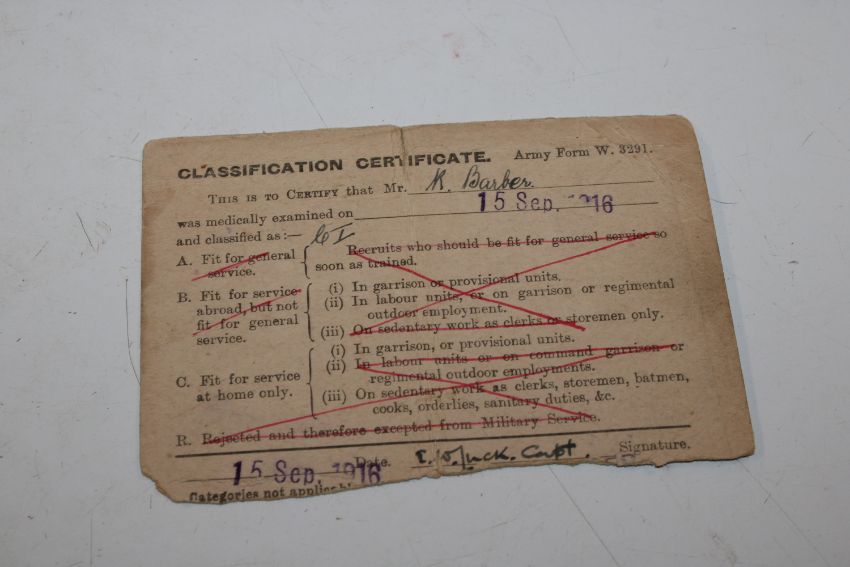 CLASSIFICATION CERTIFICATE. Army Form W. 3291.
THIS IS TO CERTIFY that Mr. R. Barber.
was medically examined on 15 Sep. 1916
and classified as:— C I
A. Fit for general service. Recruits who should be fit for general service so soon as trained.
B. Fit for service abroad, but not fit for general service.
(i) In garrison or provisional units.
(ii) In labour units, or on garrison or regimental outdoor employment.
(iii) On sedentary work as clerks or storemen only.
C. Fit for service at home only.
(i) In garrison, or provisional units.
(ii) In labour units or on command garrison or regimental outdoor employments.
(iii) On sedentary work as clerks, storemen, batmen, cooks, orderlies, sanitary duties, &c.
R. Rejected and therefore excepted from Military Service.
15 Sep. 1916 Date. Capt. Signature.
Categories not